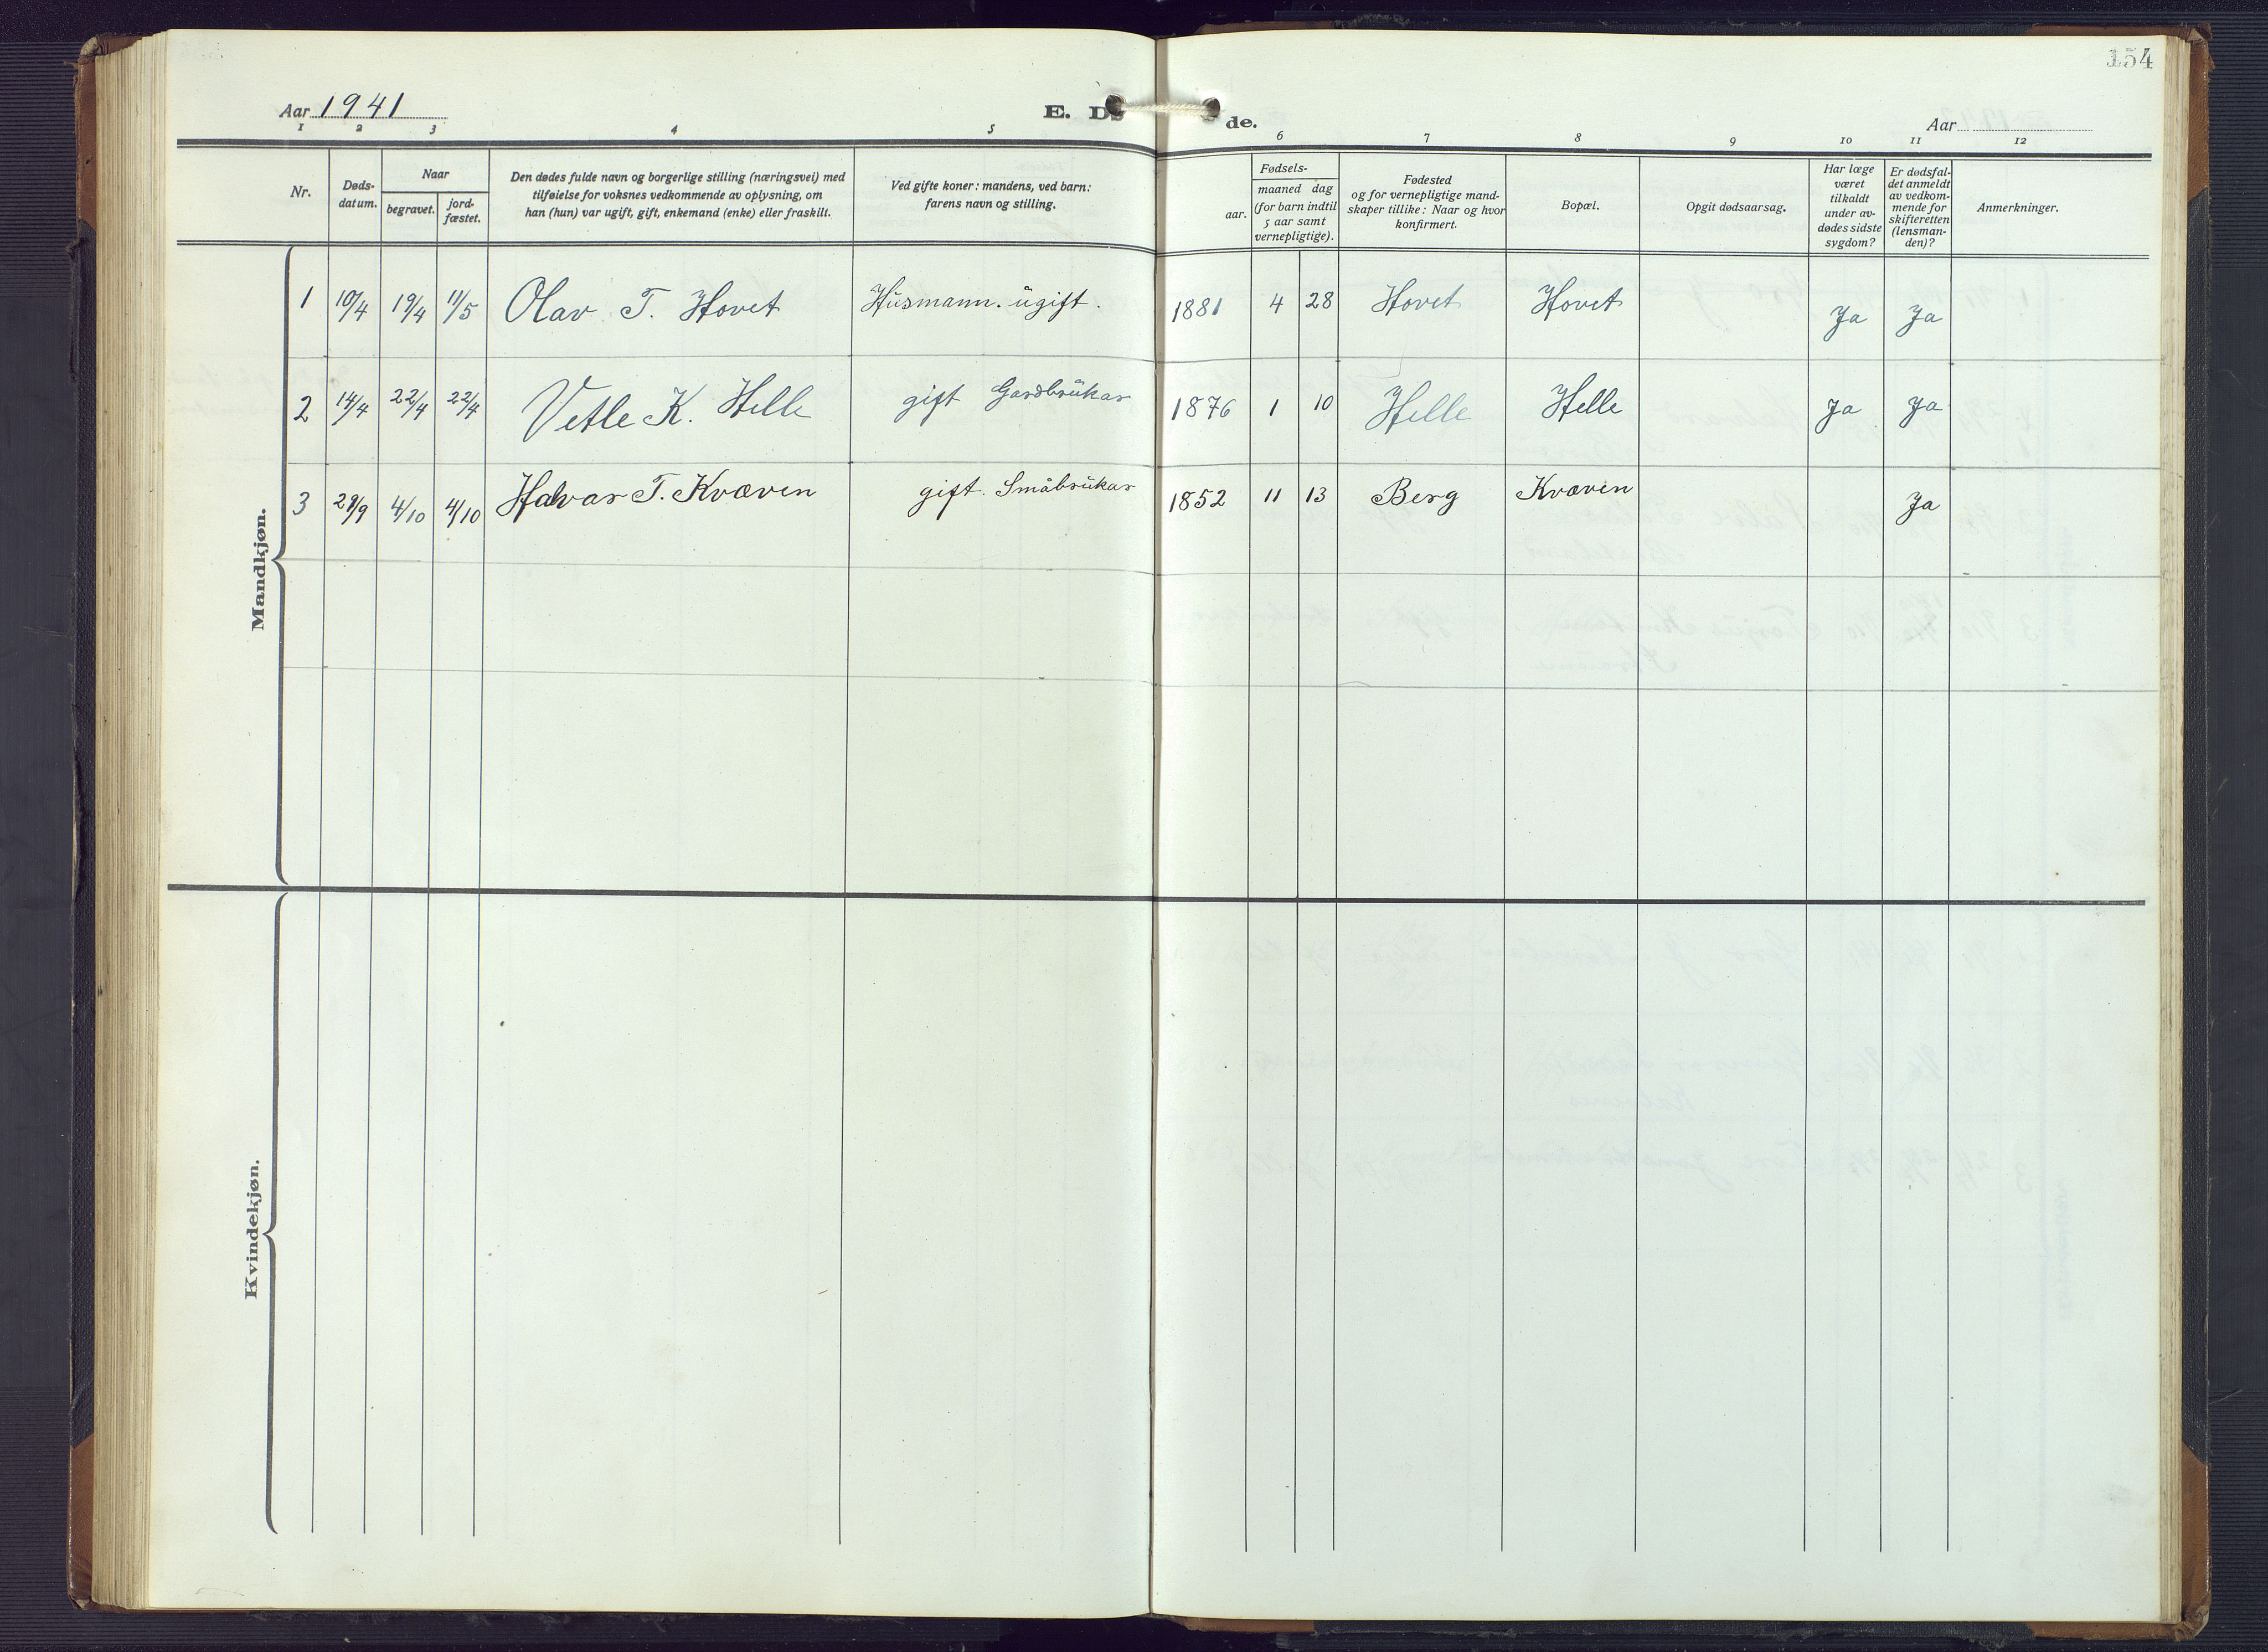 154
Aar 1941
E. Dø de.
Aar
1 2 3 4 5 6 7 8 9 10 11 12
Nr.
Døds-
datum.
Naar
begravet.
jord-
fæstet.
Den dødes fulde navn og borgerlige stilling (næringsvei) med
tilføielse for voksnes vedkommende av oplysning, om
han (hun) var ugift, gift, enkemand (enke) eller fraskilt.
Ved gifte koner: mandens, ved barn:
farens navn og stilling.
Fødsels-
aar.
maaned dag
(for barn indtil
5 aar samt
vernepligtige).
Fødested
og for vernepligtige mand-
skaper tillike: Naar og hvor
konfirmert.
Bopæl.
Opgit dødsaarsag.
Har læge
været
tilkaldt
under av-
dødes sidste
sygdom?
Er dødsfal-
det anmeldt
av vedkom-
mende for
skifteretten
(lensman-
den)?
Anmerkninger.
Mandkjøn.
1 10/4 19/4 11/5 Olav T. Hovet Husmann. ugift. 1881 4 28 Hovet Hovet Ja Ja
2 14/4 22/4 22/4 Vetle K. Helle gift Gardbrukar 1876 1 10 Helle Helle Ja Ja
3 29/9 4/10 4/10 Halvar T. Kvæven gift. Småbrukar 1852 11 13 Berg Kvæven Ja
Kvindekjøn.